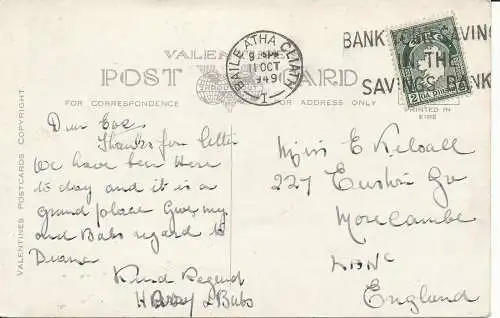 VALENTINE'S
POST CARD
FOR CORRESPONDENCE
FOR ADDRESS ONLY
PRINTED IN
EIRE
VALENTINES POSTCARDS COPYRIGHT
BAILE ATHA CLIATH
11 OCT
1949
BANK YOUR SAVINGS
IN THE
SAVINGS BANK
Dear Eve
Thanks for letter
We have been here
to day and it is a
grand place Give my
and Babs regard to
Diane
Kind Regard
Harry & Babs
Miss E Kelsall
227 Euston Gv
Morecambe
Lanc
England